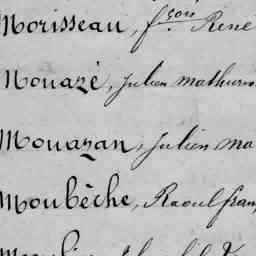 Morisseau, fçois René
Mouazé, Julien mathurin
Mouazan, Julien ma
Moubèche, Raoul fran